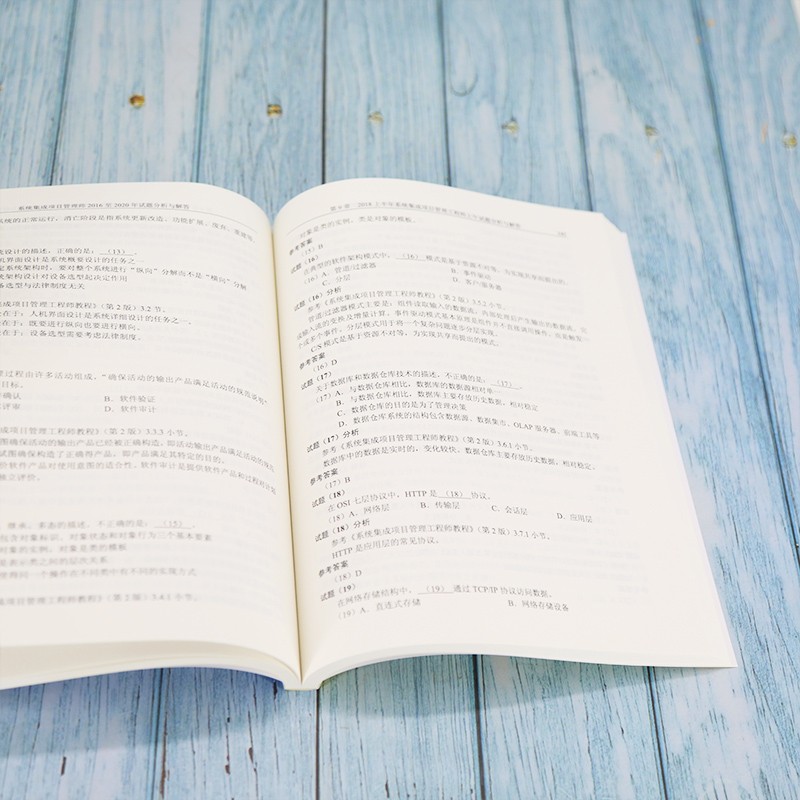 系统集成项目管理师 2016 至 2020 年试题分析与解答
统的正常运行；消亡阶段是指系统更新改造、功能扩展、
统设计的描述，正确的是：（13）。
机界面设计是系统概要设计的任务之一
定系统架构时，要对整个系统进行“纵向”分解而不是“横向”分解
统架构设计对设备选型起决定作用
备选型与法律制度无关
集成项目管理工程师教程》（第 2 版）3.2 节。
在于：人机界面设计是系统详细设计的任务之一。
在于：既要进行纵向也要进行横向。
在于：设备选型需要考虑法律制度。
过程由许多活动组成，“确保活动的输出产品满足活动的规范说明”
目标。
确认 B. 软件验证
评审 D. 软件审计
成项目管理工程师教程》（第 2 版）3.3.3 小节。
图确保活动的输出产品已经被正确构造，即活动输出产品满足活动的规范
试图确保构造了正确得产品，即产品满足其特定的目的。
价软件产品对使用意图的适合性。软件审计是提供软件产品和过程对于
独立评价。
继承、多态的描述，不正确的是：（15）。
包含对象标识、对象状态和对象行为三个基本要素
对象的实例；对象是类的模板
是表示类之间的层次关系
使得同一个操作在不同类中有不同的实现方式
成项目管理工程师教程》（第 2 版）3.4.1 小节。
2018 上半年系统集成项目管理工程师上午试题分析与解答
对象是类的实例；类是对象的模板。
参考答案
（15）B
试题（16）
在典型的软件架构模式中，（16）模式是基于资源不对等，为实现共享而提出的。
（16）A. 管道/过滤器 B. 事件驱动
C. 分层 D. 客户/服务器
试题（16）分析
参考《系统集成项目管理工程师教程》（第 2 版）3.5.2 小节。
管道/过滤器模式主要是：组件读取输入的数据流，内部处理后产生输出的数据流，它
或输入流的变换及增量计算。事件驱动模式基本原理是组件并不直接调用操作，而是触发一
个或多个事件。分层模式用于将一个复杂问题逐步分层实现。
C/S 模式是基于资源不对等，为实现共享而提出的模式。
参考答案
（16）D
试题（17）
关于数据库和数据仓库技术的描述，不正确的是：（17）。
（17）A. 与数据仓库相比，数据库的数据源相对单一
B. 与数据仓库相比，数据库主要存放历史数据，相对稳定
C. 数据仓库的目的是为了管理决策
D. 数据仓库系统的结构包含数据源、数据集市、OLAP 服务器、前端工具等
试题（17）分析
参考《系统集成项目管理工程师教程》（第 2 版）3.6.1 小节。
数据库中的数据是实时的，变化较快。数据仓库主要存放历史数据，相对稳定。
参考答案
（17）B
试题（18）
在 OSI 七层协议中，HTTP 是（18）协议。
（18）A. 网络层 B. 传输层 C. 会话层 D. 应用层
试题（18）分析
参考《系统集成项目管理工程师教程》（第 2 版）3.7.1 小节。
HTTP 是应用层的常见协议。
参考答案
（18）D
试题（19）
在网络存储结构中，（19）通过 TCP/IP 协议访问数据。
（19）A. 直连式存储 B. 网络存储设备